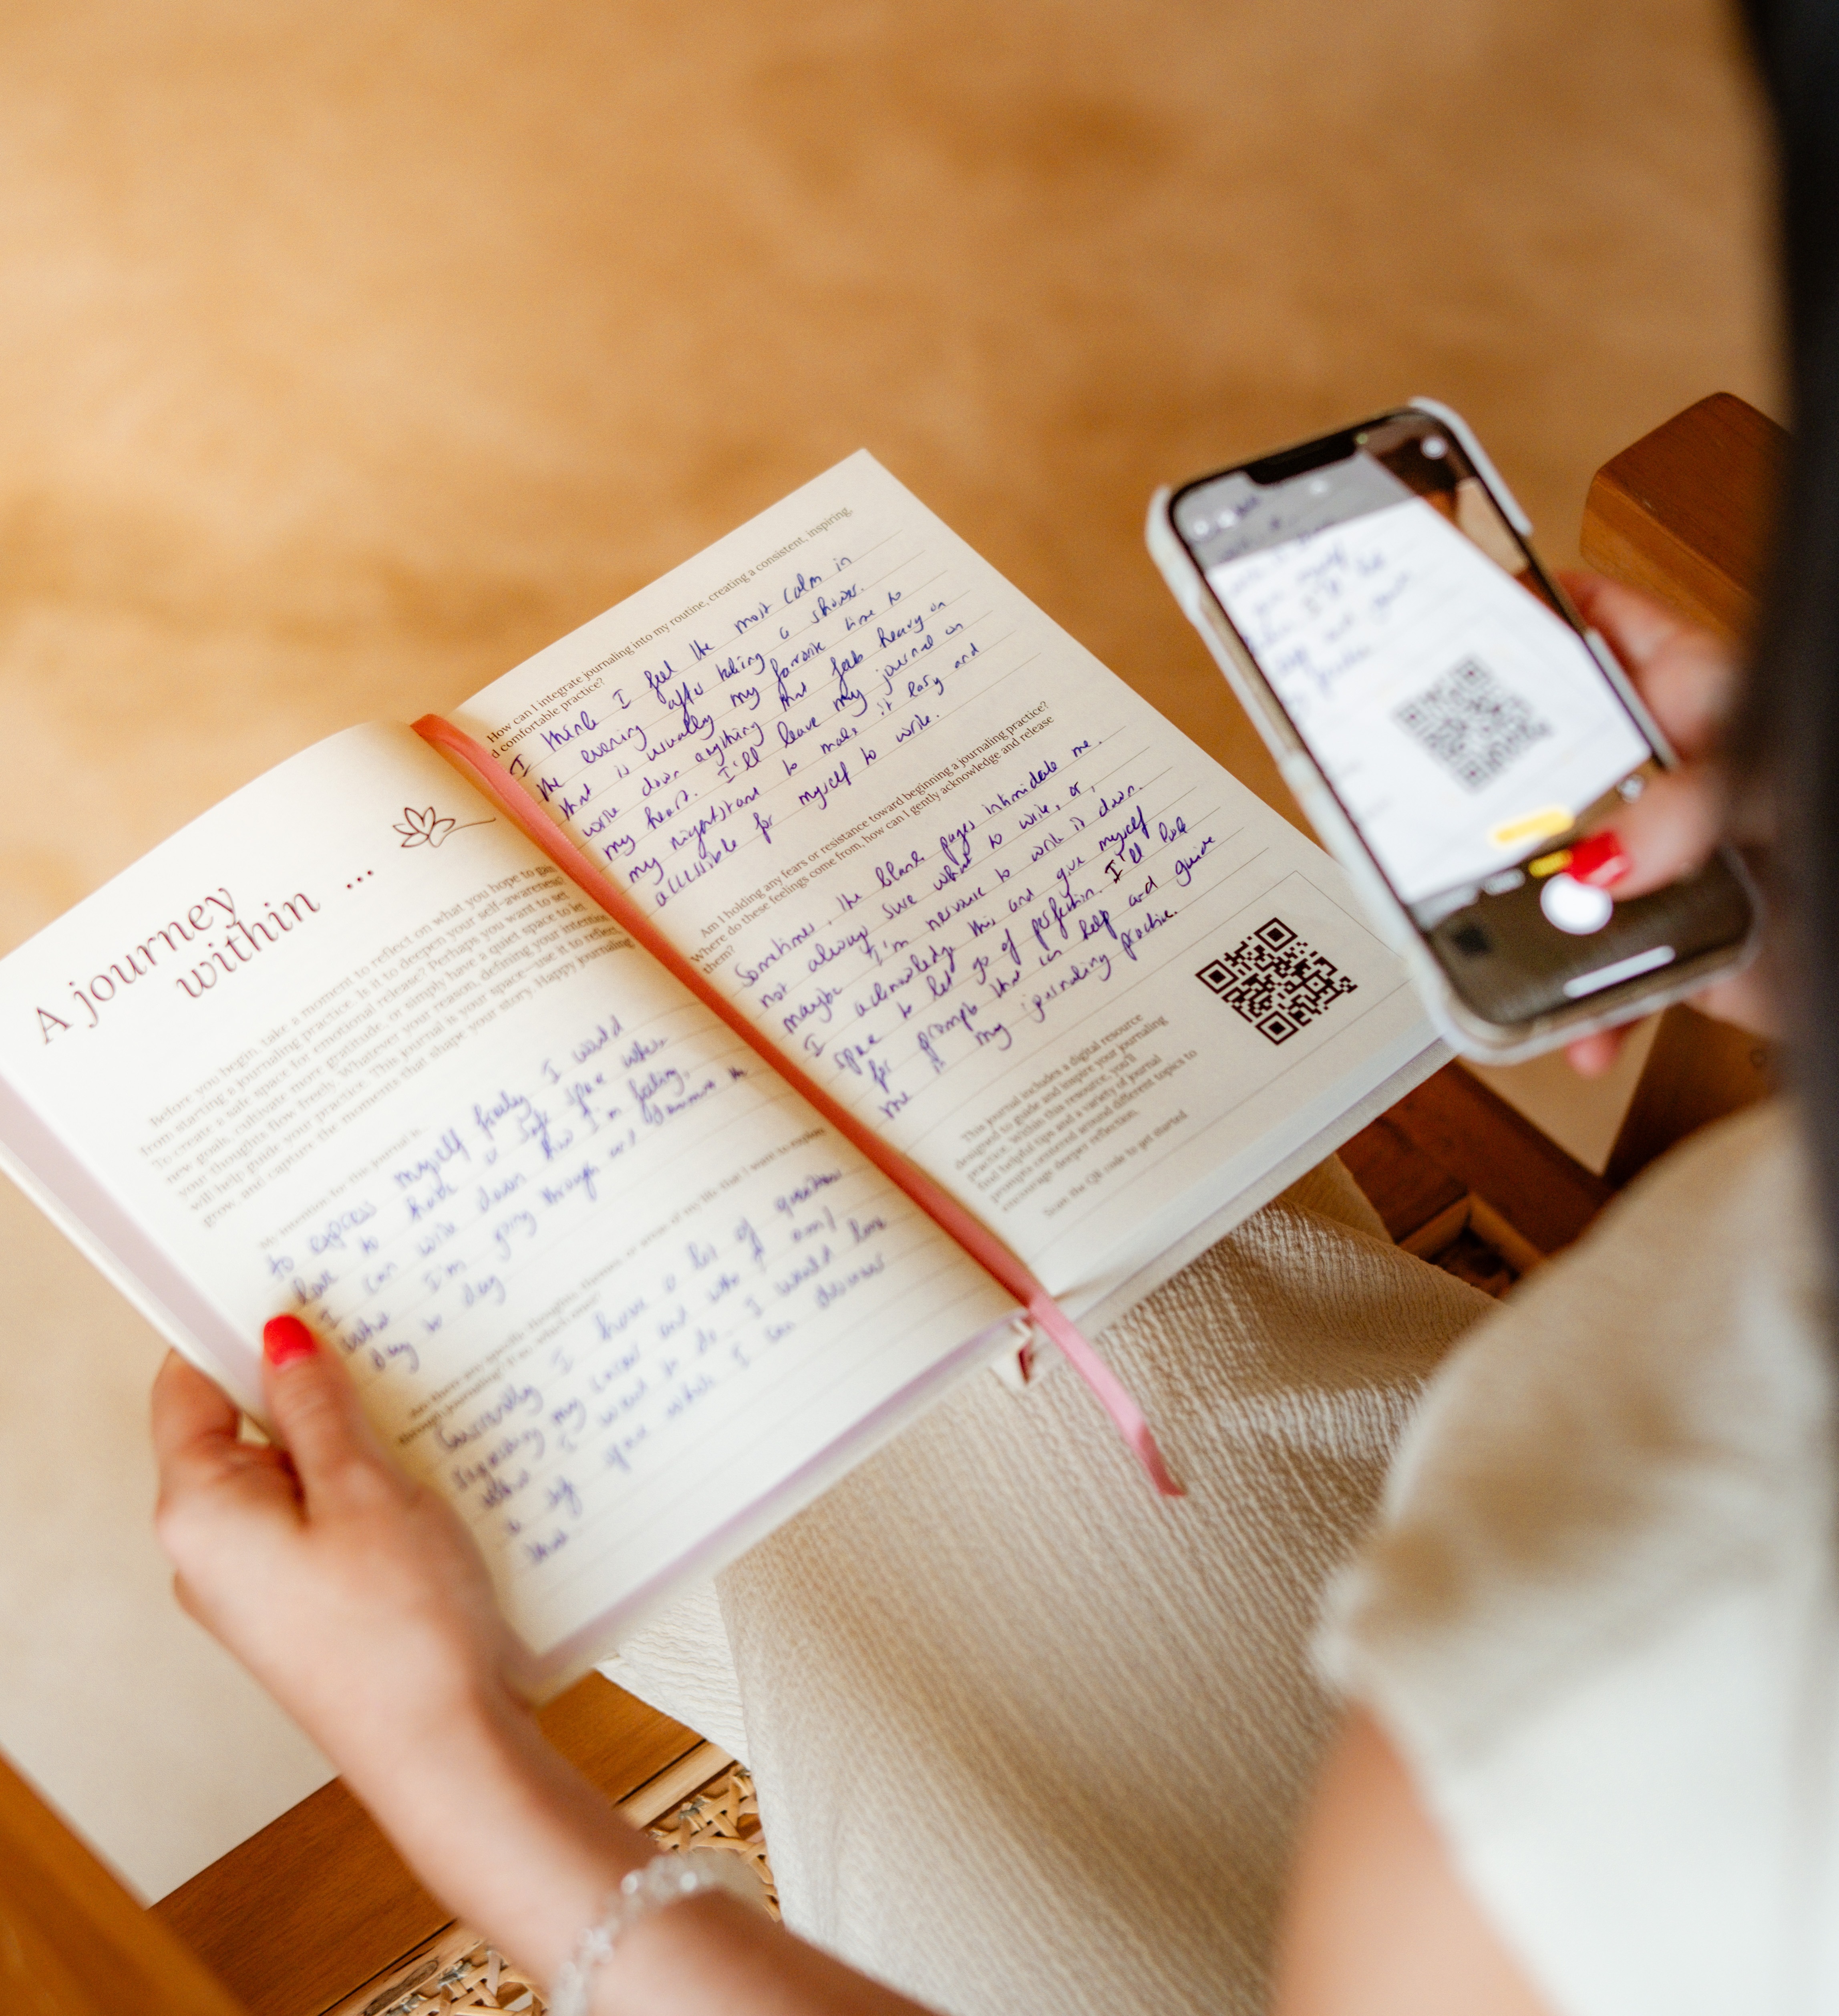 A journey
within ...
Before you begin, take a moment to reflect on what you hope to gain
from starting a journaling practice. Is it to deepen your self-awareness?
To create a safe space for emotional release? Perhaps you want to set
new goals, cultivate more gratitude, or simply have a quiet space to let
your thoughts flow freely. Whatever your reason, defining your intention
will help guide your practice. This journal is your space—use it to reflect,
grow, and capture the moments that shape your story. Happy journaling
My intention for this journal is
to express myself freely I would
love to have a safe space where
I can write down how I'm feeling,
what I'm going through and
day to day
Are there any specific thoughts, themes, or areas of my life that I want to explore
through journaling? If so, which ones?
Currently I have a lot of questions
regarding my career and who I am/
what I want to do. I would love
a safe space where I can discover
this.
How can I integrate journaling into my routine, creating a consistent, inspiring,
d comfortable practice?
I think I feel the most calm in
the evening after taking a shower.
that is usually my favorite time to
write down anything that feels heavy on
my heart. I'll leave my journal on
my nightstand to make it easy and
accessible for myself to write.
Am I holding any fears or resistance toward beginning a journaling practice?
Where do these feelings come from, how can I gently acknowledge and release
them?
Sometimes, the blank pages intimidate me.
not always sure what to write, or,
maybe I'm nervous to write it down.
I acknowledge this and give myself
space to let go of perfection. I'll look
for prompts that can help and guide
me in my journaling practice.
This journal includes a digital resource
designed to guide and inspire your journaling
practice. Within this resource, you'll
find helpful tips and a variety of journal
prompts centered around different topics to
encourage deeper reflection.
Scan the QR code to get started